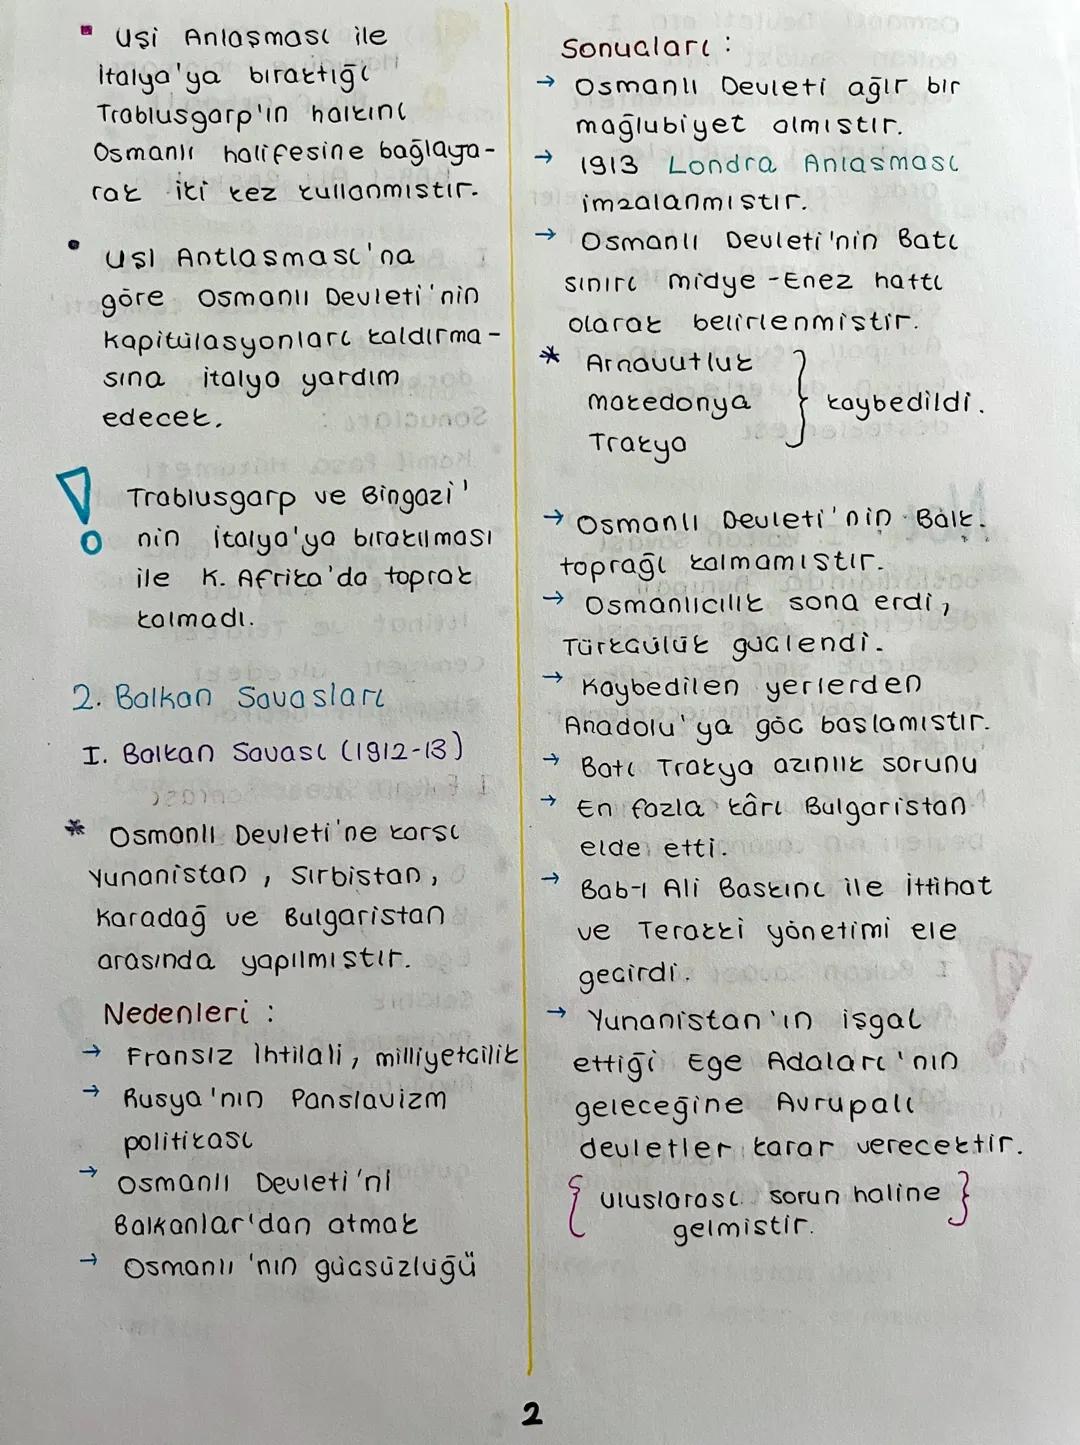 Uşi Anlaşması ile
İtalya'ya bıraktığı
Trablusgarp'ın halkını
Osmanlı halifesine bağlaya-
rak iki kez kullanmıştır.
Uşi Antlaşması'na
göre Osmanlı Devleti'nin
kapitülasyonları kaldırma-
sına italya yardım
edecek.
Trablusgarp ve Bingazi'
nin italya'ya bırakılması
ile K. Afrika'da toprak
kalmadı.
2. Balkan Savaşları
I. Balkan Savası (1912-13)
* Osmanlı Devleti'ne karsı
Yunanistan, Sırbistan,
Karadağ ve Bulgaristan
arasında yapılmıştır.
Nedenleri :
→ Fransız İhtilali, milliyetcilik
→ Rusya'nın Panslavizm
politikası
→ Osmanlı Devleti'ni
Balkanlar'dan atmak
→ Osmanlı'nın gücsüzlüğü
Sonucları :
→ Osmanlı Devleti ağır bir
mağlubiyet almıstır.
→ 1913 Londra Anlasması
imzalanmıstır.
→ Osmanlı Devleti'nin Batı
sınırı midye-Enez hattı
olarak belirlenmistir.
* Arnavutluk
makedonya } kaybedildi.
Trakya
→ Osmanlı Devleti'nin Balk.
toprağı kalmamıstır.
→ Osmanlıcılık sona erdi,
Türkcülük güclendi.
→ Kaybedilen yerlerden
Anadolu'ya göc baslamıstır.
→ Batı Trakya azınlık sorunu
→ En fazla kârı Bulgaristan
elde etti.
→ Bab-ı Ali Baskını ile İttihat
ve Terakki yönetimi ele
gecirdi.
→ Yunanistan'ın işgal
ettiği Ege Adaları'nın
geleceğine Avrupalı
devletler karar verecektir.
{ uluslarası sorun haline }
gelmistir.
2